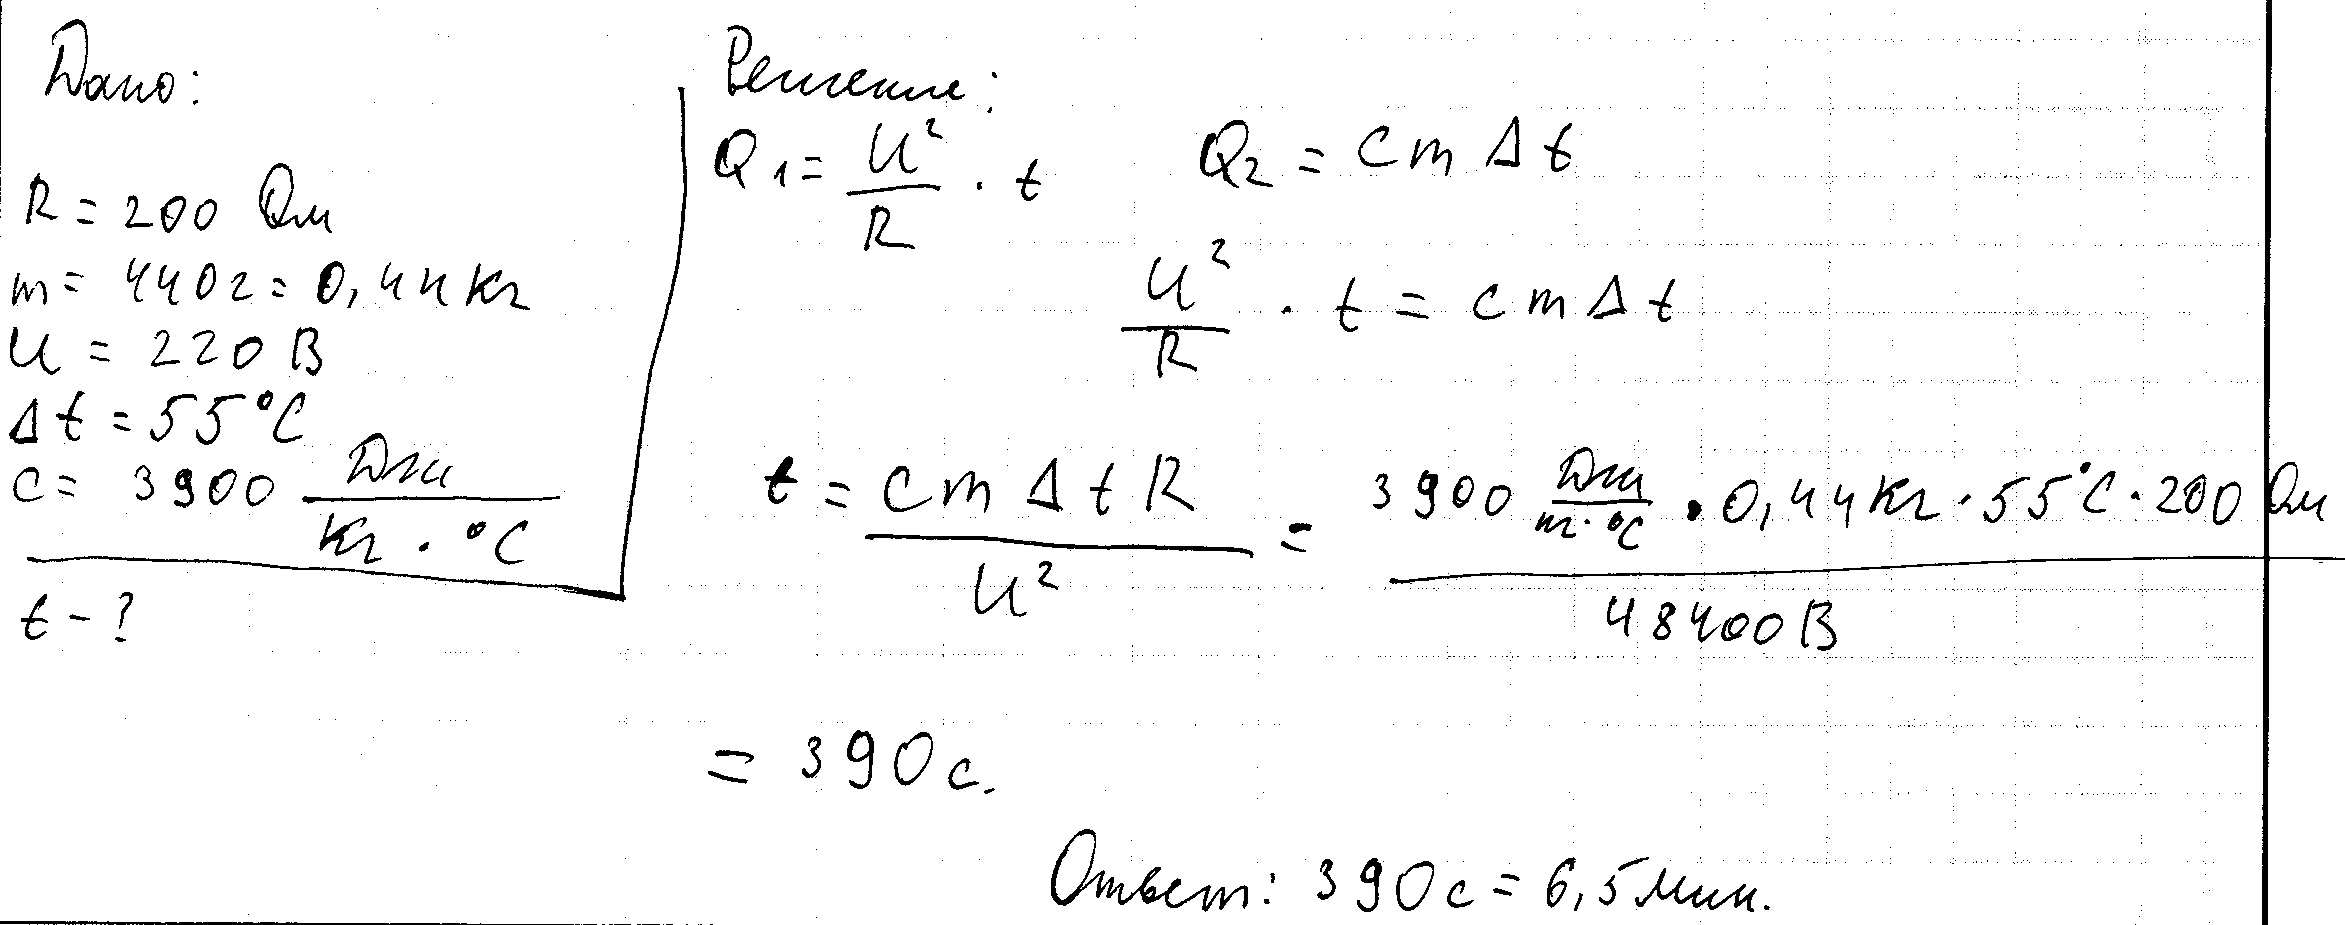 Дано:
R = 200 Ом
m = 440г = 0,44 кг
U = 220 В
Δt = 55°C
c = 3900 Дж/кг·°C
t - ?
Решение:
Q₁ = U²/R · t    Q₂ = cmΔt
U²/R · t = cmΔt
t = cmΔtR/U² = 3900 Дж/m·°C · 0,44кг · 55°C · 200 Ом/48400 В
= 390 с.
Ответ: 390 с = 6,5 мин.